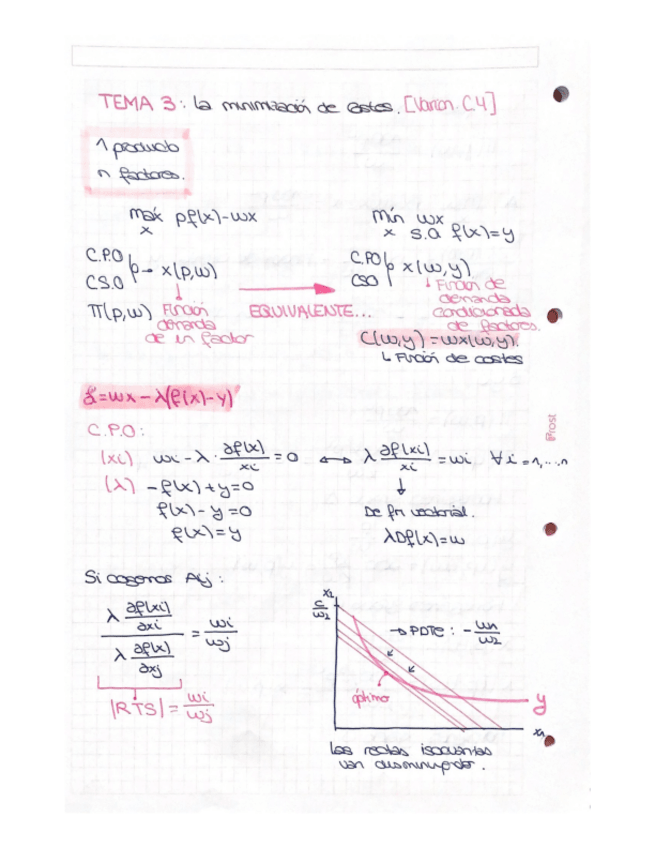 TEMA 3: La minimización de costes. [Varian. C.4]
1 producto
n factores.
máx pf(x)-wx
x
C.P.O
C.S.O → x(p,w)
↓
π(p,w) Función
demanda
de un factor
EQUIVALENTE...
mín wx
x s.a f(x)=y
C.P.O
CSO x(w,y)
↓ Función de
demanda
condicionada
de factores.
C(w,y)=wx(w,y).
↳ Función de costes
ℒ=wx-λ(f(x)-y)
C.P.O:
(xi) wi-λ·∂f(x)/xi=0 ↔ λ ∂f(xi)/xi=wi ∀i=1,...,n
(λ) -f(x)+y=0
f(x)-y=0
f(x)=y
↓
De fn vectorial.
λDf(x)=w
Si cogemos i≠j:
λ ∂f(xi)/∂xi
λ ∂f(x)/∂xj
= wi/wj
|RTS|= wi/wj
x2
C/w2
→ PDTE: -w1/w2
óptimo
y
x1
Las rectas isocuantas
van disminuyendo.
Prost